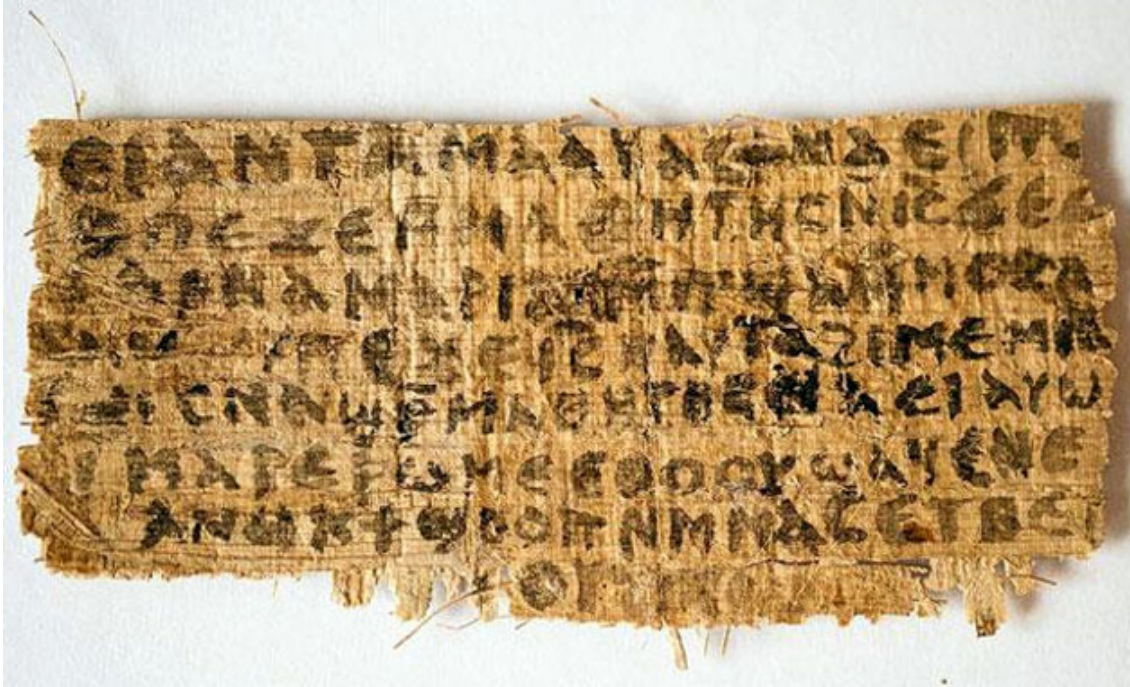 ⲉⲓⲁⲛⲧⲁⲙⲁⲁⲩⲁⲥϯⲛⲁⲉⲓⲡⲱ
ⲡⲉϫⲉⲙⲙⲁⲑⲏⲧⲏⲥⲛⲓⲥϫⲉⲥ
ⲁⲣⲛⲁⲙⲁⲣⲓⲁⲙⲙⲡϣⲁⲙⲙⲟⲥⲁ
ⲡⲉϫⲉⲓⲥⲛⲁⲩⲧⲁϩⲓⲙⲉⲙⲛ
ⲥⲛⲁϣⲣⲙⲁⲑⲏⲧⲏⲥⲛⲁⲉⲓⲁⲩⲱ
ⲓⲙⲁⲣⲉⲣⲱⲙⲉⲉⲑⲟⲟⲩϣⲁϥⲉⲛⲉ
ⲁⲛⲟⲕϯϣⲟⲟⲡⲛⲙⲙⲁⲥⲉⲧⲃⲉ